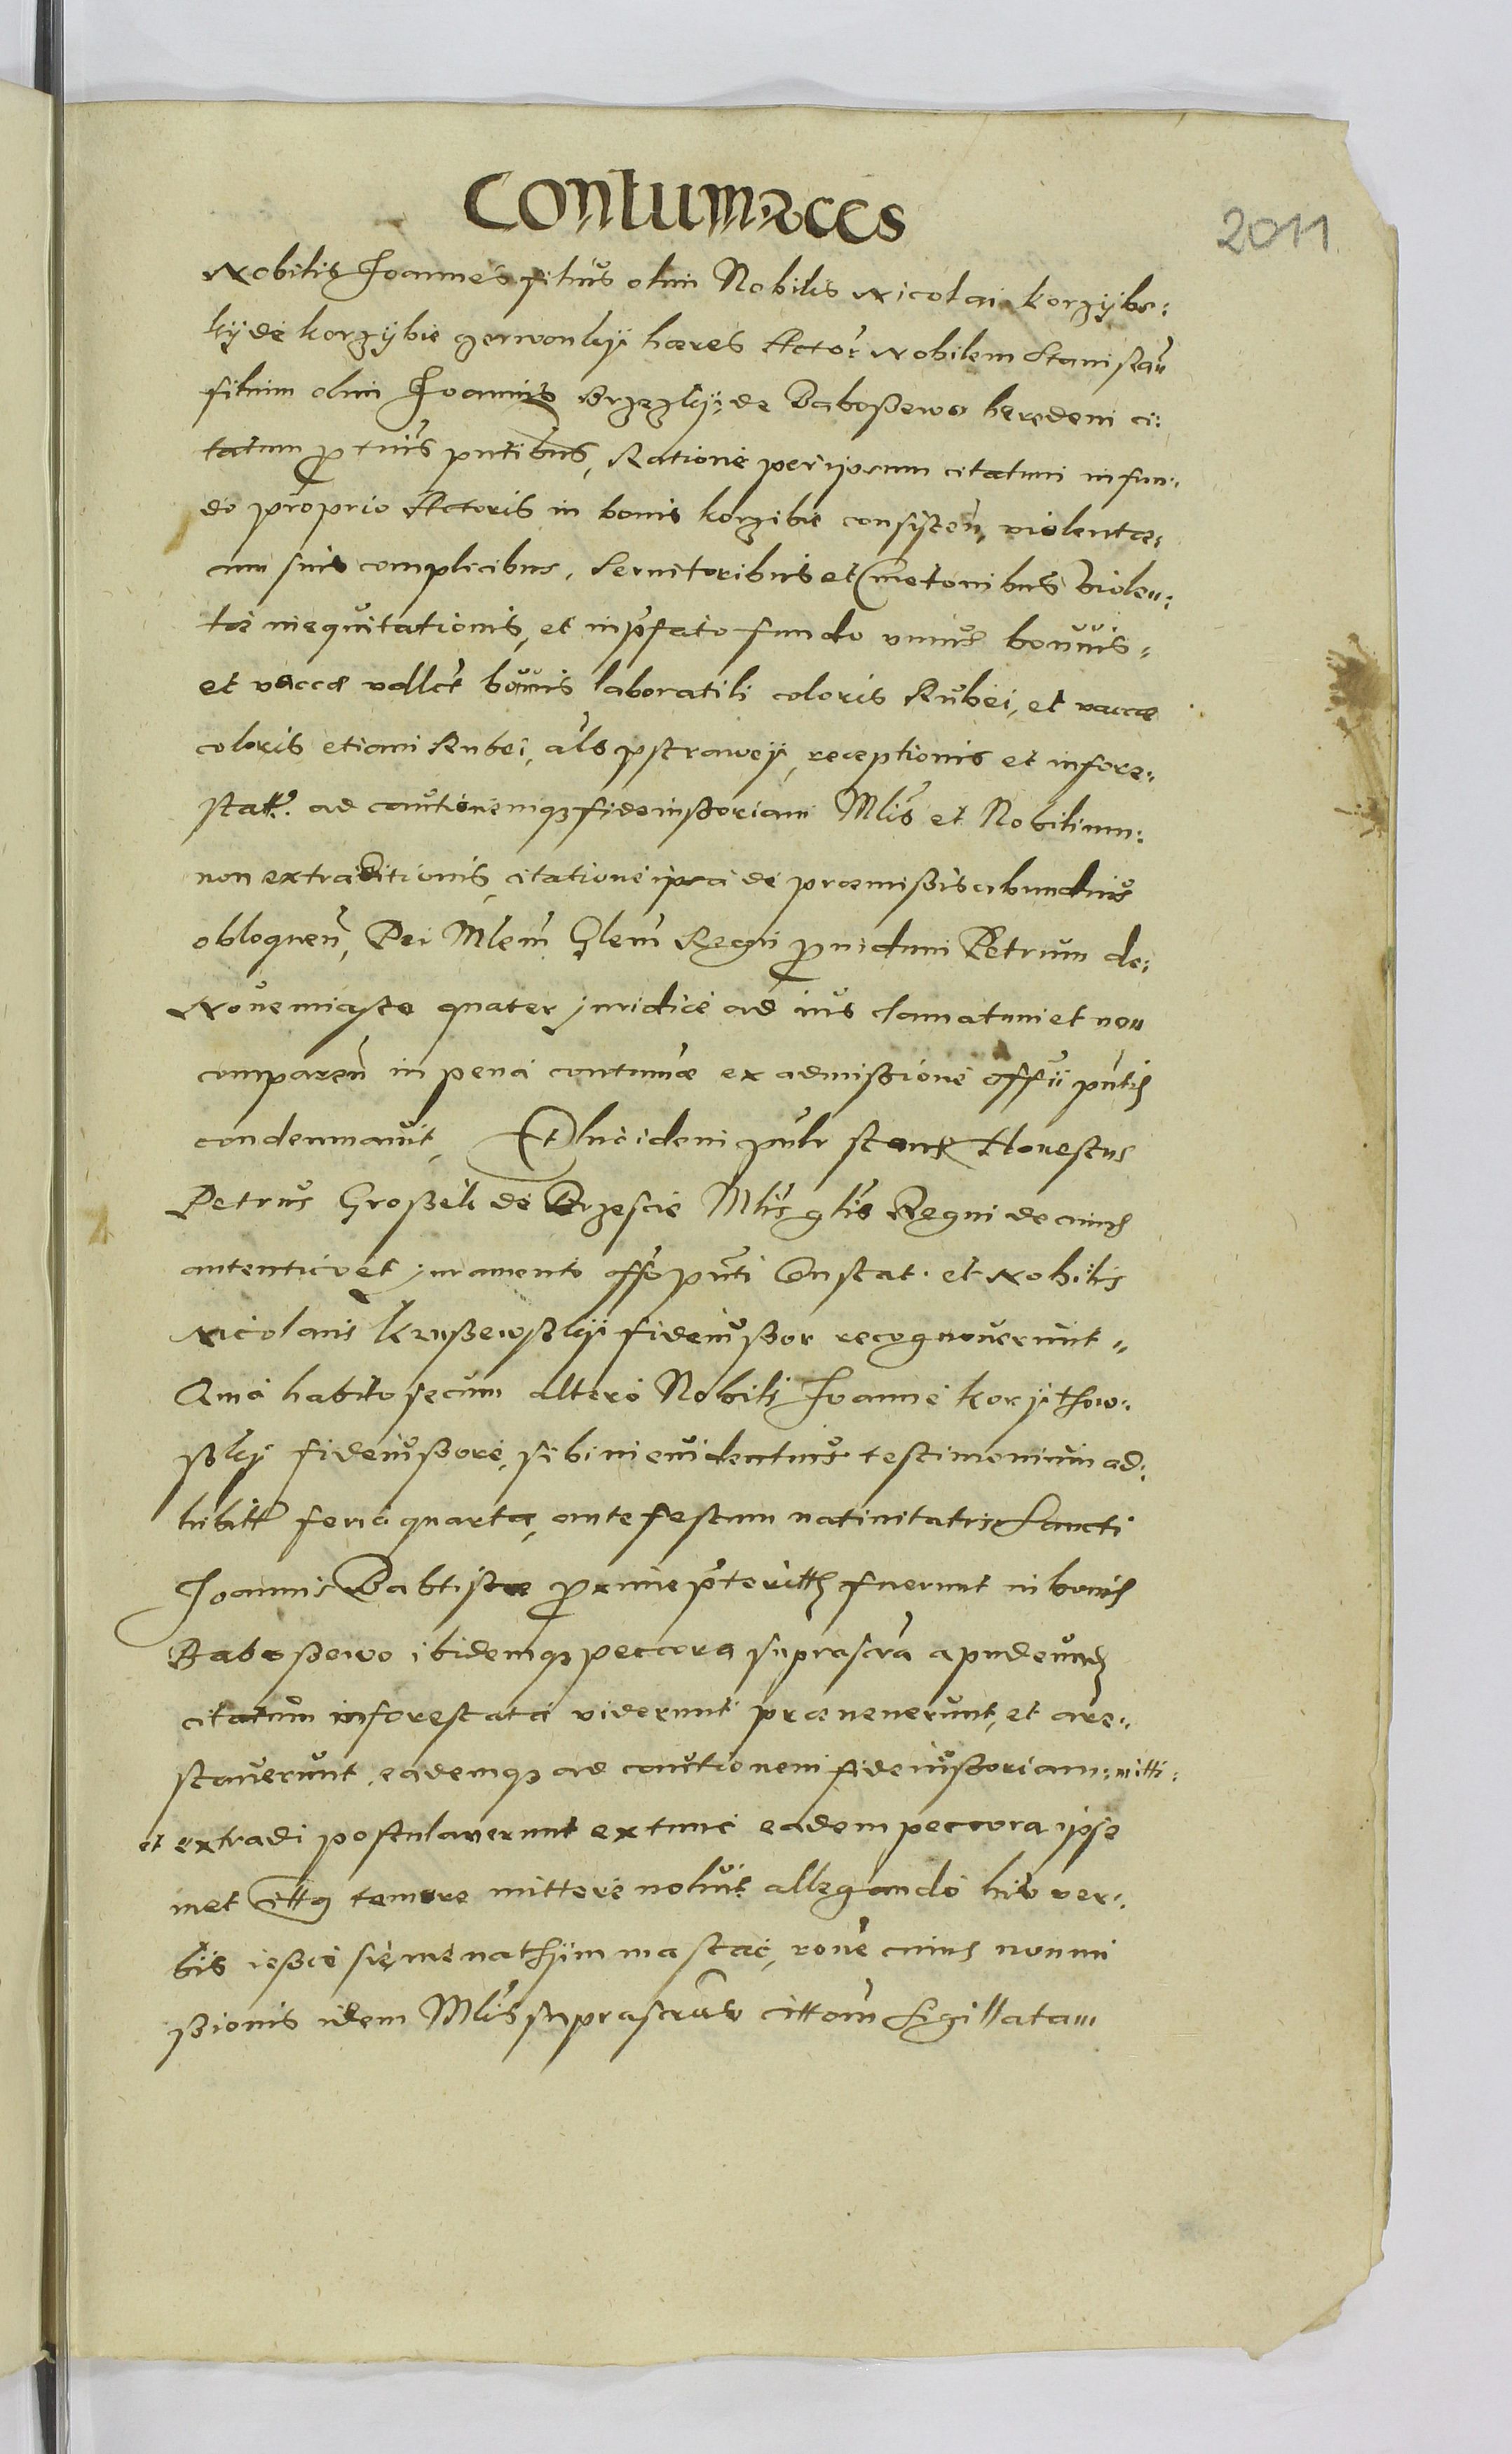 Contumaces
2011
Nobilis Joannes filius olim Nobilis Nicolai korzÿbs:
kÿ de korzÿbie gerwonkÿ hæres Actor Nobilem Stanislau
filium olim Joannis Brzezkÿ de Baboßewo heredem ci:
tatum p tnis pntibus, Ratione per ipsum citatum in fun:
do proprio Actoris in bonis korzibie consisten, violentæ:
cum suis complicibus, Seruitoribus et Cmetonibus Violen:
tæ inequitationis, et in pfato fundo unius bouis
et vaccæ bouis laboratili coloris Rubei, et vaccæ
coloris etiam Rubei, als pstraweÿ, receptionis et infore:
stat. ad cautionemqz fideiussoriam Mlis et Nobilium:
non extraditionis, citatione ipsa de præmißis abundius
obloquen, Per Mlem Glem Regni puidum Petrum de:
Nouemiasto quater juridice ad ius clamatum et non
comparen in pena contumæ ex admissione offii pntis
condemnauit, Et hic idem stans Honestus
Petrus Großek de Brzescie Mlis glis Regni de cuius
autentico et juramento offo pnti Constat. et Nobilis
Nicolaus Krußewskÿ fideiußor recognouerunt
Quia habito secum altero Nobili Joanne korÿthow:
skÿ fideiußore, sibi in euidentius testimonium ad:
hibitt feria quarta, ante festum natiuitatis Sancti
Joannis Babtistæ pxime pteritt fuerunt in bonis
Baboßewo ibidemqz peccora suprascra apud eund
citatum inforestata viderunt præuenerunt, et are:
stauerunt, eademqz ad cautionem fideiußoriam: mitti:
et extradi postulauerunt extunc eadem peccora ipse
met Cittq temere mittere noluit allegando his ver:
bis ießcie sie mie na thÿm ma stac, rone cuius non mi
ßionis idem Mlis suprascras cittom Sigillata